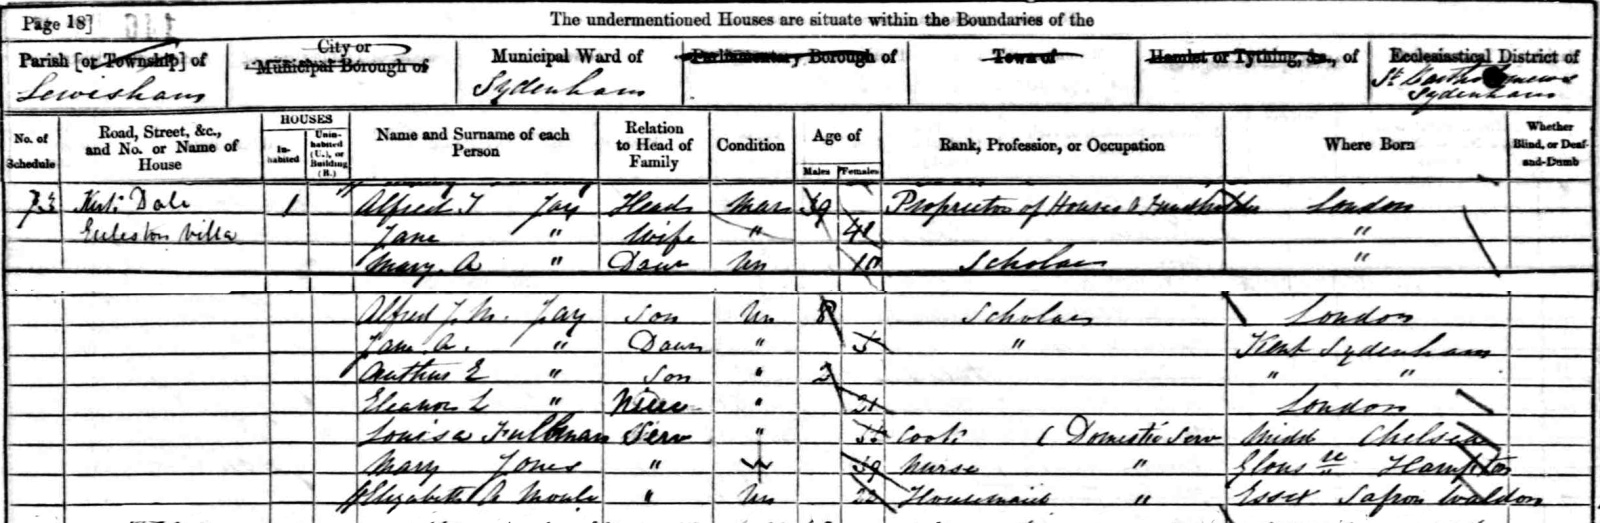 Page 18]
The undermentioned Houses are situate within the Boundaries of the
Parish [or Township] of
City or Municipal Borough of
Municipal Ward of
Parliamentary Borough of
Town of
Hamlet or Tything, &c., of
Ecclesiastical District of
Lewisham Sydenham St Bartholomews Sydenham
No. of Schedule
Road, Street, &c., and No. or Name of House
HOUSES
In-habited
Unin-habited (U.), or Building (B.)
Name and Surname of each Person
Relation to Head of Family
Condition
Age of
Males Females
Rank, Profession, or Occupation
Where Born
Whether Blind, or Deaf-and-Dumb
73 Kirk Dale 1 Alfred T Jay Head Mar 39 Proprietor of Houses & Fundholder London
Eccleston Villa Jane " Wife " "
Mary A " Daur Un 10 Scholar "
Alfred J. M. Jay Son Un 8 Scholar London
Jane A. " Daur " 5 " Kent Sydenham
Arthur E " Son " 2 " "
Eleanor L " Niece " 21 London
Louisa Serv " Cook (Domestic Serv Midd Chelsea
Mary Jones " 39 Nurse " Glous re Hampton
Elizabeth A Moule " Un 22 Housemaid " Essex Safron Waldon